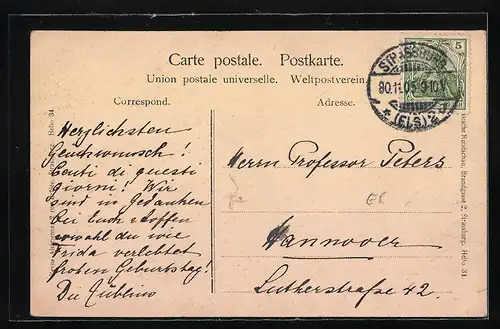 Carte postale. Postkarte.
Union postale universelle. Weltpostverein.
Correspond. Adresse.
5
STRASSBURG
30.11.05. 9-10V
* (ELS) 2 d
Herzlichsten
Glückwunsch!
Cento di questi
giorni! Wir
sind in Gedanken
bei Euch u. hoffen
sowohl du wie
Frida verlebtet
frohen Geburtstag!
Die
Herrn Professor Peters
Hannover
Lutherstraße 42.
Rundschau, Brandgasse 2, Strassburg. Helio 34.
Helio 34.